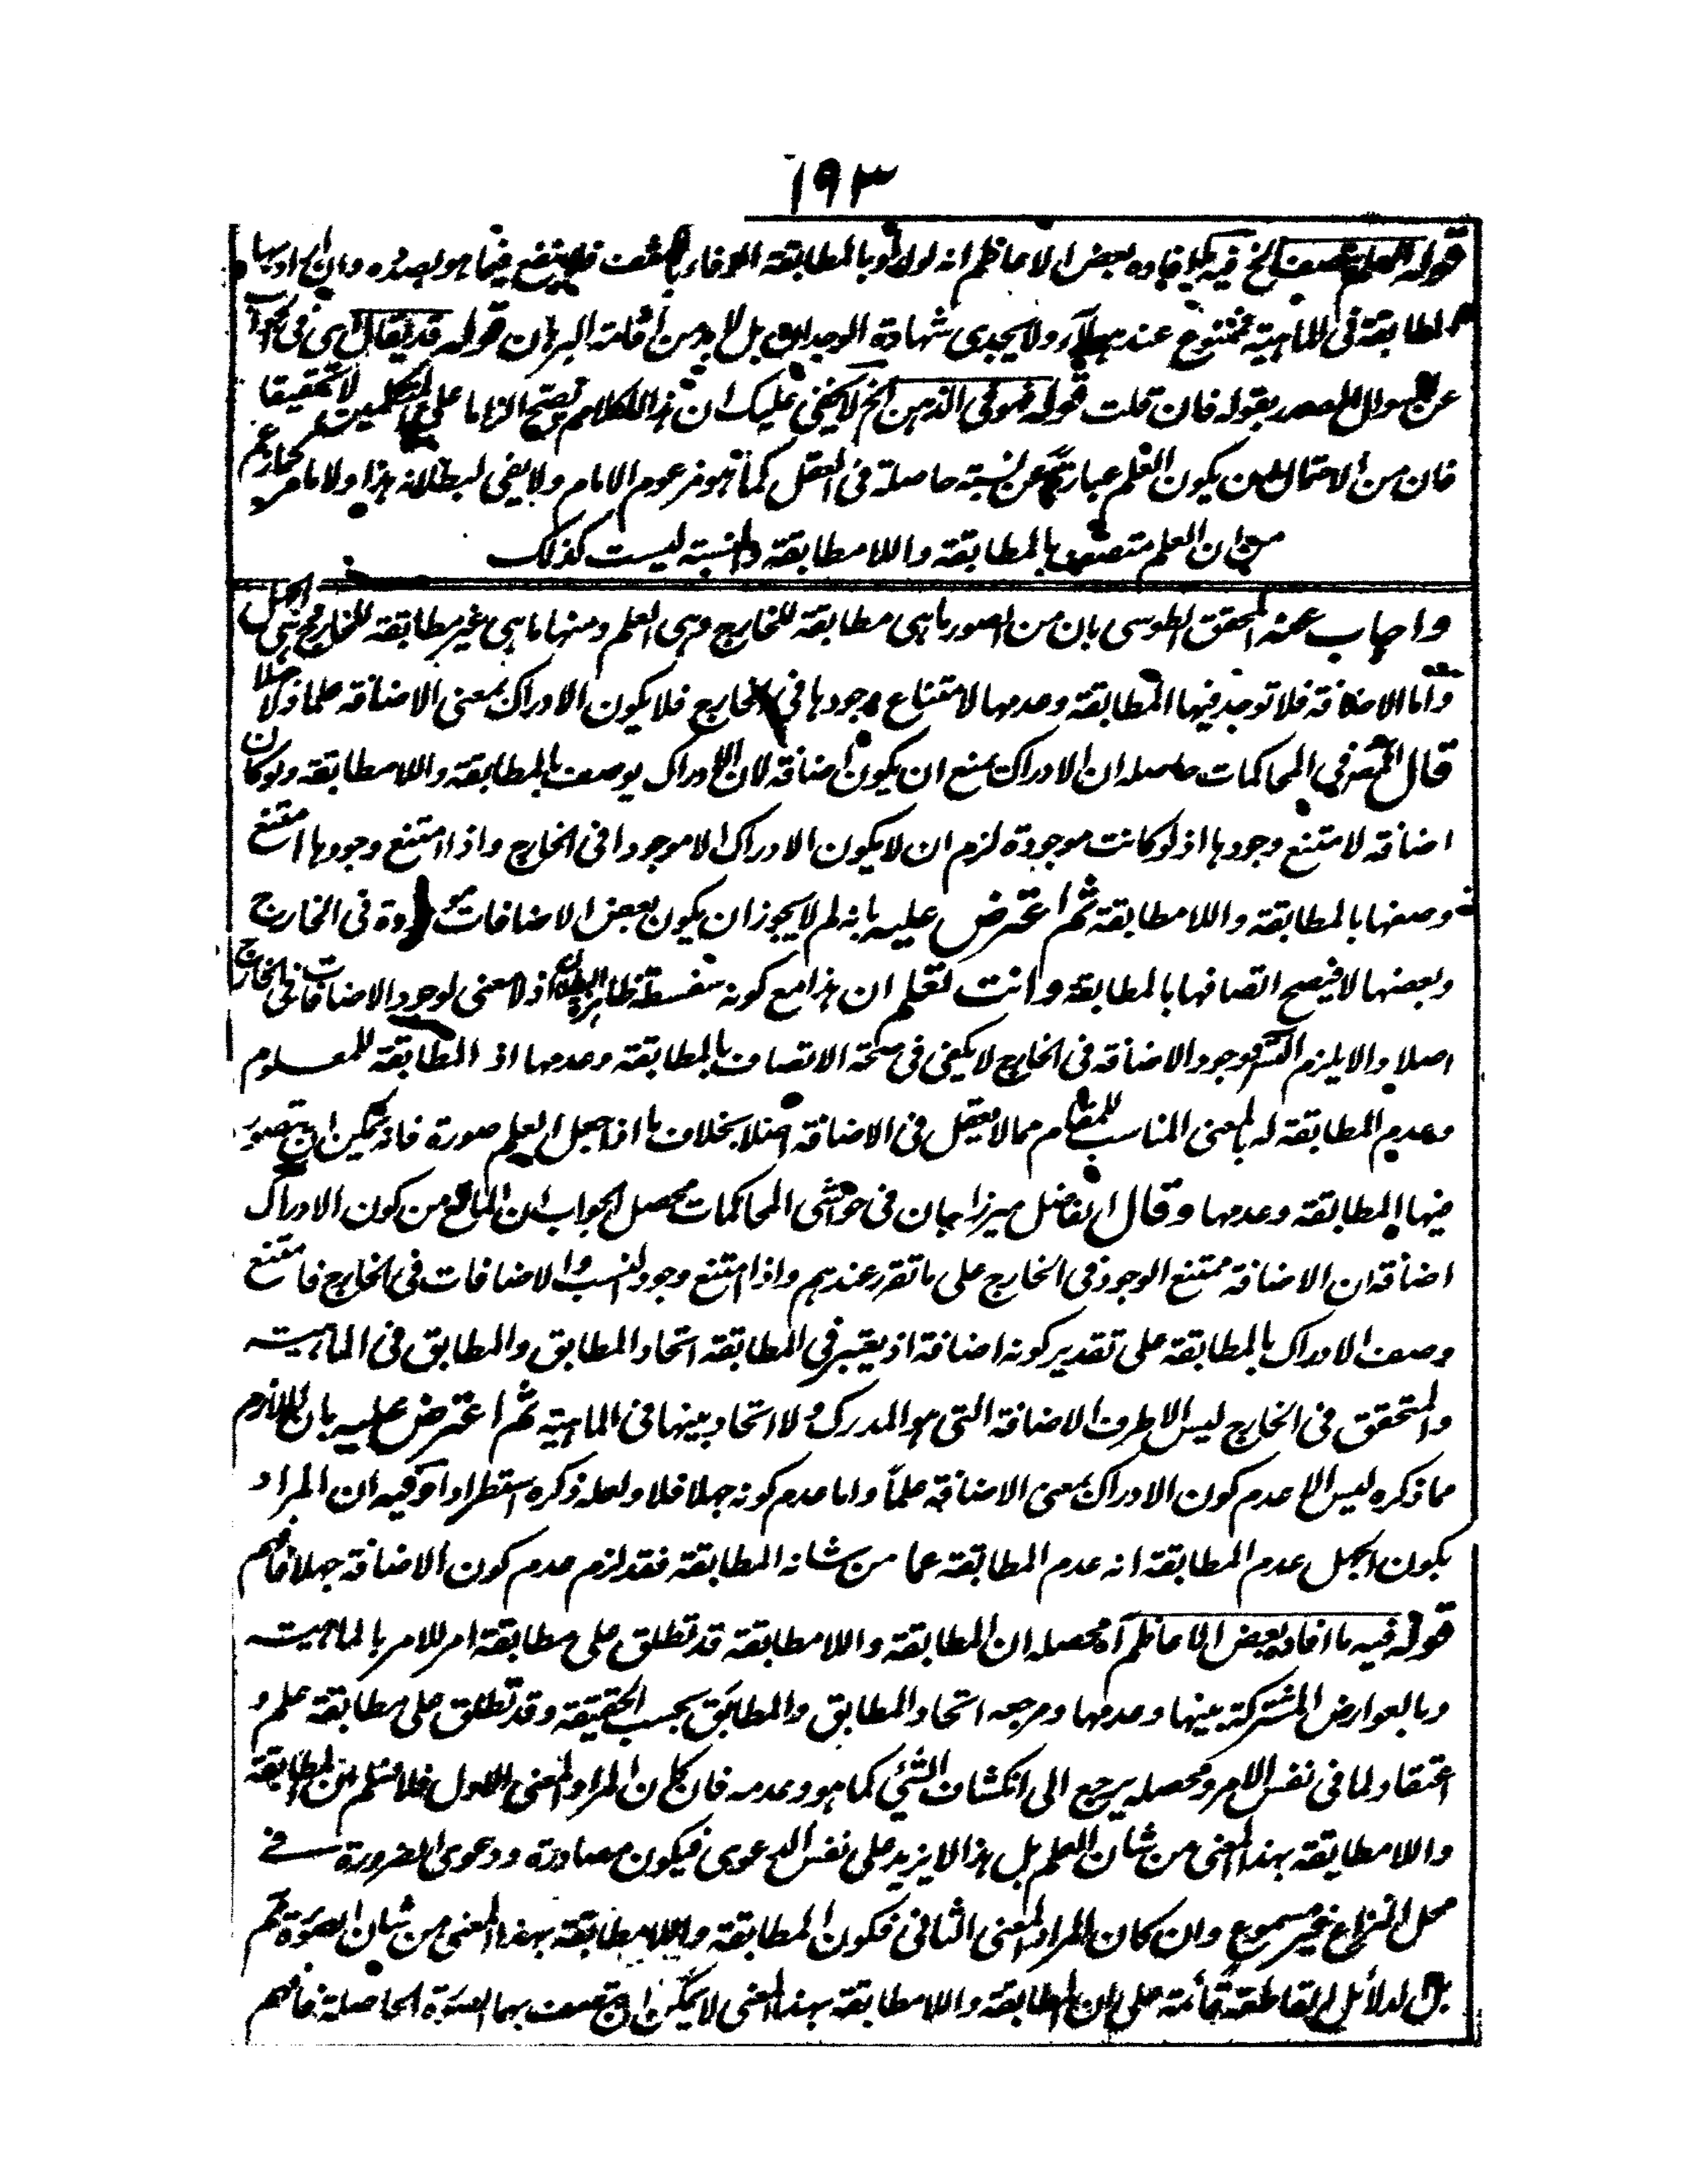 ١٩٣
قوله العلم يتصف الخ فيه ما افاده بعض الاعاظم انه لو ارادوا بالمطابقة فلا ينفع فيما هو بصدده وان اراد بها
المطابقة فى الماهية فممنوع عند هولاء ولا يجدى شهادة الوجدان بل لا بد من اقامة البرهان قوله قد يقال اى فى الجواب
عن السوال المصدر بقوله فان قلت قوله فهو فى الذهن الخ لا يخفى عليك ان هذا الكلام يصح الزاما على المتكلمين لا تحقيقا
فان من الاحتمال ان يكون العلم عبارة عن نسبة حاصلة فى العقل كما هو مزعوم الامام ولا يفى لبطلانه هذا ولا ما مر
من ان العلم متصف بالمطابقة واللامطابقة والنسبة ليست كذلك
واجاب عنه المحقق الطوسى بان من الصور ما هى مطابقة للخارج وهى العلم ومنها ما هى غير مطابقة للخارج وهى الجهل
واما الاضافة فلا توجد فيها المطابقة وعدمها لامتناع وجودها فى الخارج فلا يكون الادراك بمعنى الاضافة علما ولا جهلا
قال فى المحاكمات حاصله ان الادراك يمتنع ان يكون اضافة لان الادراك يوصف بالمطابقة واللامطابقة ولو كان
اضافة لامتنع وجودها اذ لو كانت موجودة لزم ان لا يكون الادراك الا موجودا فى الخارج واذا امتنع وجودها امتنع
وصفها بالمطابقة واللامطابقة ثم اعترض عليه بانه لم لا يجوز ان يكون بعض الاضافات موجودة فى الخارج
وبعضها لا فيصح اتصافها بالمطابقة وانت تعلم ان هذا مع كونه سفسطة ظاهرة البطلان اذ لا معنى لوجود الاضافات فى الخارج
اصلا والا يلزم التسلسل فوجود الاضافة فى الخارج لا يكفى فى صحة الاتصاف بالمطابقة وعدمها اذ المطابقة للمعلوم
وعدم المطابقة له بالمعنى المناسب للمقام مما لا يعقل فى الاضافة اصلا بخلاف ما اذا جعل العلم صورة فانه يمكن ان يتصور
فيها المطابقة وعدمها وقال الفاضل ميرزا جان فى حواشى المحاكمات محصل الجواب ان المانع من كون الادراك
اضافة ان الاضافة ممتنع الوجود فى الخارج على ما تقرر عندهم واذا امتنع وجود النسب والاضافات فى الخارج فامتنع
وصف الادراك بالمطابقة على تقدير كونه اضافة اذ يعتبر فى المطابقة اتحاد المطابق والمطابق فى الماهية
والمتحقق فى الخارج ليس الا طرف الاضافة التى هو المدرك ولا اتحاد بينها فى الماهية ثم اعترض عليه بان اللازم
مما ذكره ليس الا عدم كون الادراك بمعنى الاضافة علماً واما عدم كونه جهلا فلا ولعله ذكره استطرادا وفيه ان المراد
بكون الجهل عدم المطابقة انه عدم المطابقة عما من شانه المطابقة فقد لزم عدم كون الاضافة جهلا فافهم
قوله فيه ما افاده بعض الاعاظم آه محصله ان المطابقة واللامطابقة قد تطلق على مطابقة امر للامر بالماهية
وبالعوارض المشتركة بينها وعدمها ومرجعه اتحاد المطابق والمطابق بحسب الحقيقة وقد تطلق على مطابقة علم و
اعتقاد لما فى نفس الامر ومحصله يرجع الى انكشاف الشئ كما هو وعدمه فان كان المراد المعنى الاول فلا نسلم ان المطابقة
واللامطابقة بهذا المعنى من شان العلم بل هذا لا يزيد على نفس الدعوى فيكون مصادرة ودعوى الضرورة فى
محل النزاع غير مسموع وان كان المراد المعنى الثانى فكون المطابقة واللامطابقة بهذا المعنى من شان الصورة ثم
بل الدلائل القاطعة قائمة على ان المطابقة واللامطابقة بهذا المعنى لا يمكن ان تتصف بها الصورة الحاصلة فافهم